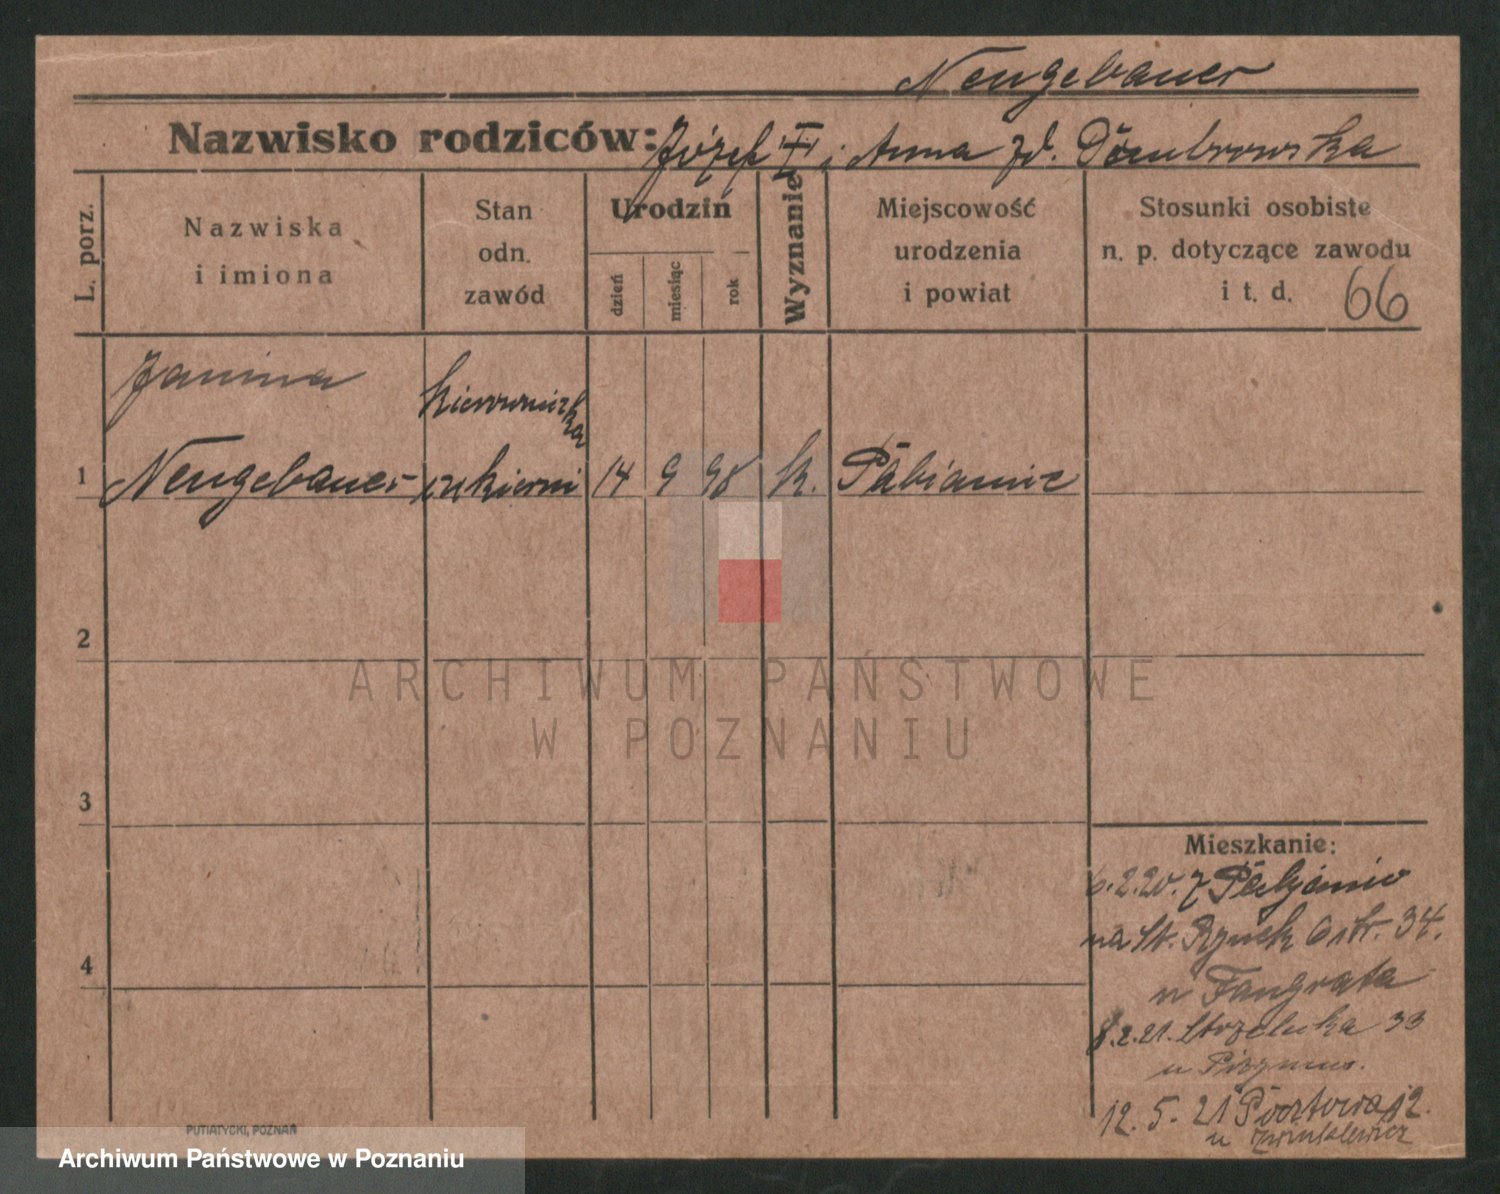 Neugebauer
Nazwisko rodziców: Józef i Anna zd. Dombrowska
L. porz.
Nazwiska
i imiona
Stan
odn.
zawód
Urodzin
dzień
miesiąc
rok
Wyznanie
Miejscowość
urodzenia
i powiat
Stosunki osobiste
n. p. dotyczące zawodu
i t. d. 66
Janina kierowniczka
1 Neugebauer cukierni 14 9 98 k. Pabianic
2
ARCHIWUM PAŃSTWOWE
W POZNANIU
3
Mieszkanie:
6.2.20. z Pabjanic
na St. Rynek 34.
4
u
8.2.21. Strzelecka 33
u
12.5.21 Pocztowa 12.
u
PUTIATYCKI, POZNAŃ
Archiwum Państwowe w Poznaniu